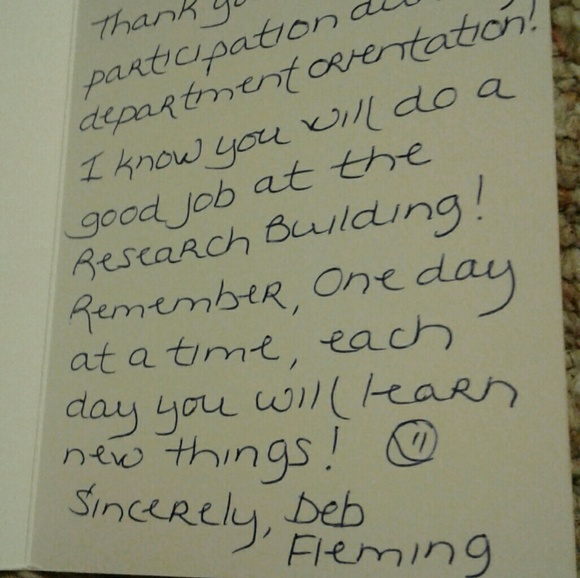 Thank
participation
department orientation!
I know you will do a
good job at the
Research Building!
Remember, One day
at a time, each
day you will learn
new things!
Sincerely, Deb
Fleming